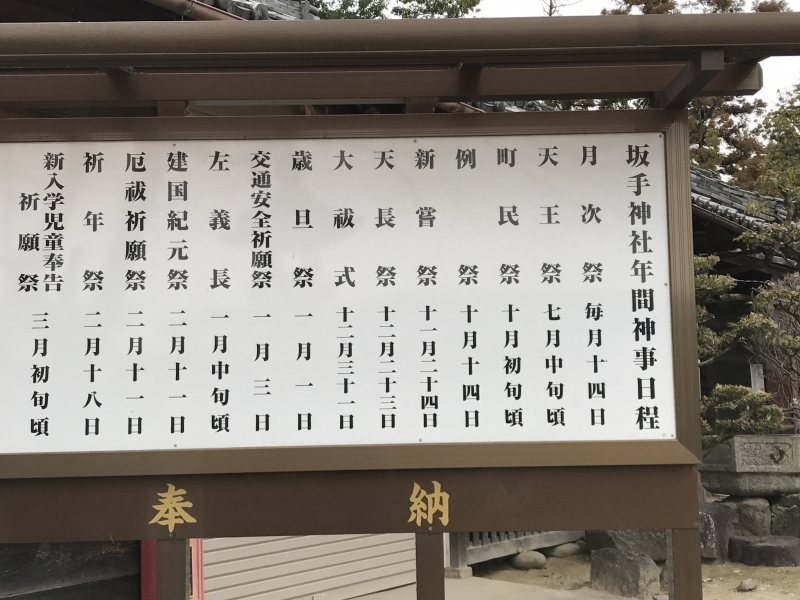 坂手神社年間神事日程
月次祭 毎月十四日
天王祭 七月中旬頃
町民祭 十月初旬頃
例祭 十月十四日
新嘗祭 十一月二十四日
天長祭 十二月二十三日
大祓式 十二月三十一日
歳旦祭 一月一日
交通安全祈願祭 一月三日
左義長 一月中旬頃
建国紀元祭 二月十一日
厄祓祈願祭 二月十一日
祈年祭 二月十八日
新入学児童奉告
祈願祭 三月初旬頃
奉納